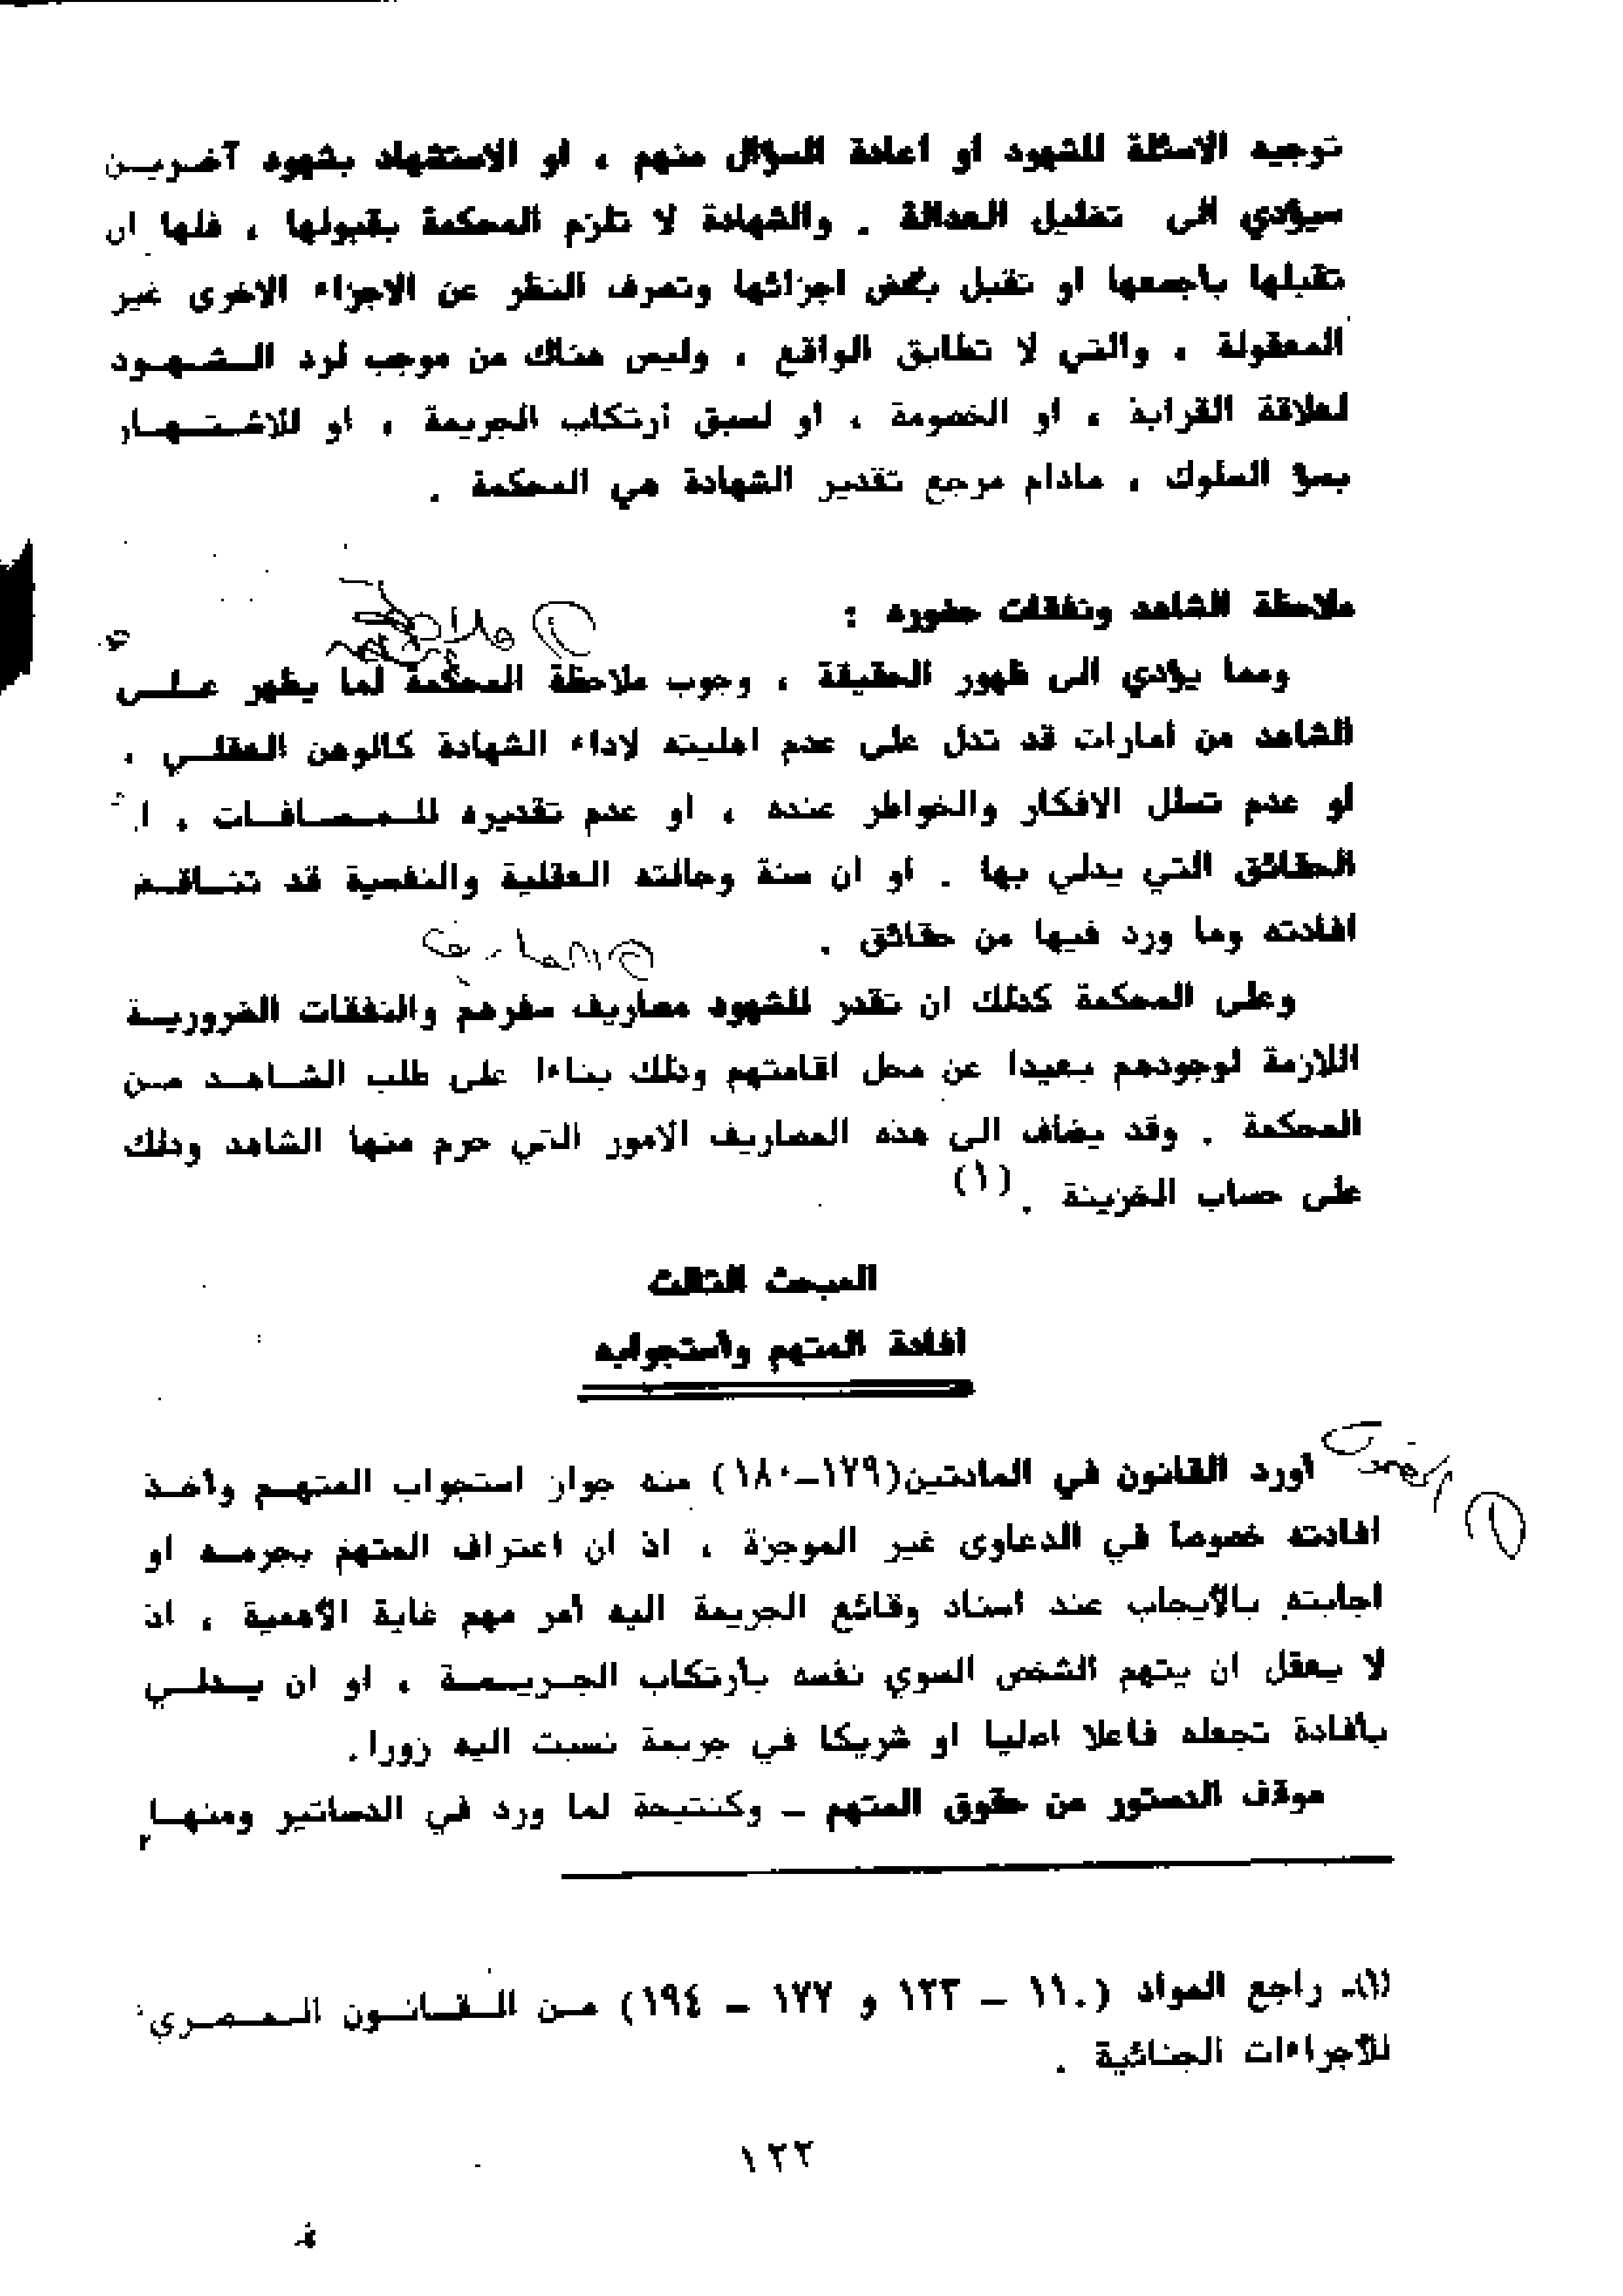 توجيه الاسئلة للشهود او اعادة السؤال منهم ، او الاستشهاد بشهود آخريـن
سيؤدي الى تضليل العدالة . والشهادة لا تلزم المحكمة بقبولها ، فلها ان
تقبلها باجمعها او تقبل بعض اجزائها وتصرف النظر عن الاجزاء الاخرى غير
المعقولة ، والتي لا تطابق الواقع ، وليس هناك من موجب لرد الـشـهـود
لعلاقة القرابة ، او الخصومة ، او لسبق أرتكاب الجريمة ، او للاشـتـهـار
بسؤ السلوك ، مادام مرجع تقدير الشهادة هي المحكمة .
ملاحظة الشاهد ونفقات حضوره :
ومما يؤدي الى ظهور الحقيقة ، وجوب ملاحظة المحكمة لما يظهر عـلـى
الشاهد من أمارات قد تدل على عدم اهليته لاداء الشهادة كالوهن العقلـي ،
او عدم تسلل الافكار والخواطر عنده ، او عدم تقديره للـمـسـافـات ،
الحقائق التي يدلي بها . او ان سنة وحالته العقلية والنفسية قد تنـاقـض
افادته وما ورد فيها من حقائق .
المصاريف
وعلى المحكمة كذلك ان تقدر للشهود مصاريف سفرهم والنفقات الضروريـة
اللازمة لوجودهم بعيدا عن محل اقامتهم وذلك بناءا على طلب الشـاهـد مـن
المحكمة . وقد يضاف الى هذه المصاريف الامور التي حرم منها الشاهد وذلك
على حساب الخزينة . (١)
المبحث الثالث
افادة المتهم وأستجوابه
أورد القانون في المادتين(١٧٩-١٨٠) منه جواز استجواب المتهـم وأخـذ
افادته خصوصا في الدعاوى غير الموجزة ، اذ ان اعتراف المتهم بجرمـه او
اجابته بالأيجاب عند اسناد وقائع الجريمة اليه أمر مهم غاية الأهمية ، اذ
لا يعقل ان يتهم الشخص السوي نفسه بأرتكاب الجـريـمـة ، او ان يـدلـي
بأفادة تجعله فاعلا اصليا او شريكا في جريمة نسبت اليه زورا.
موقف الدستور من حقوق المتهم - وكنتيجة لما ورد في الدساتير ومنهـا
(١)- راجع المواد (١١٠ - ١٢٣ و ١٧٧ - ١٩٤) مـن الـقـانـون الـمـصـري
للأجراءات الجنائية .
١٢٢